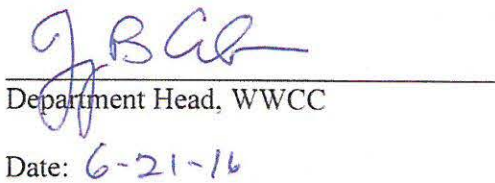 Department Head, WWCC
Date: 6-21-16